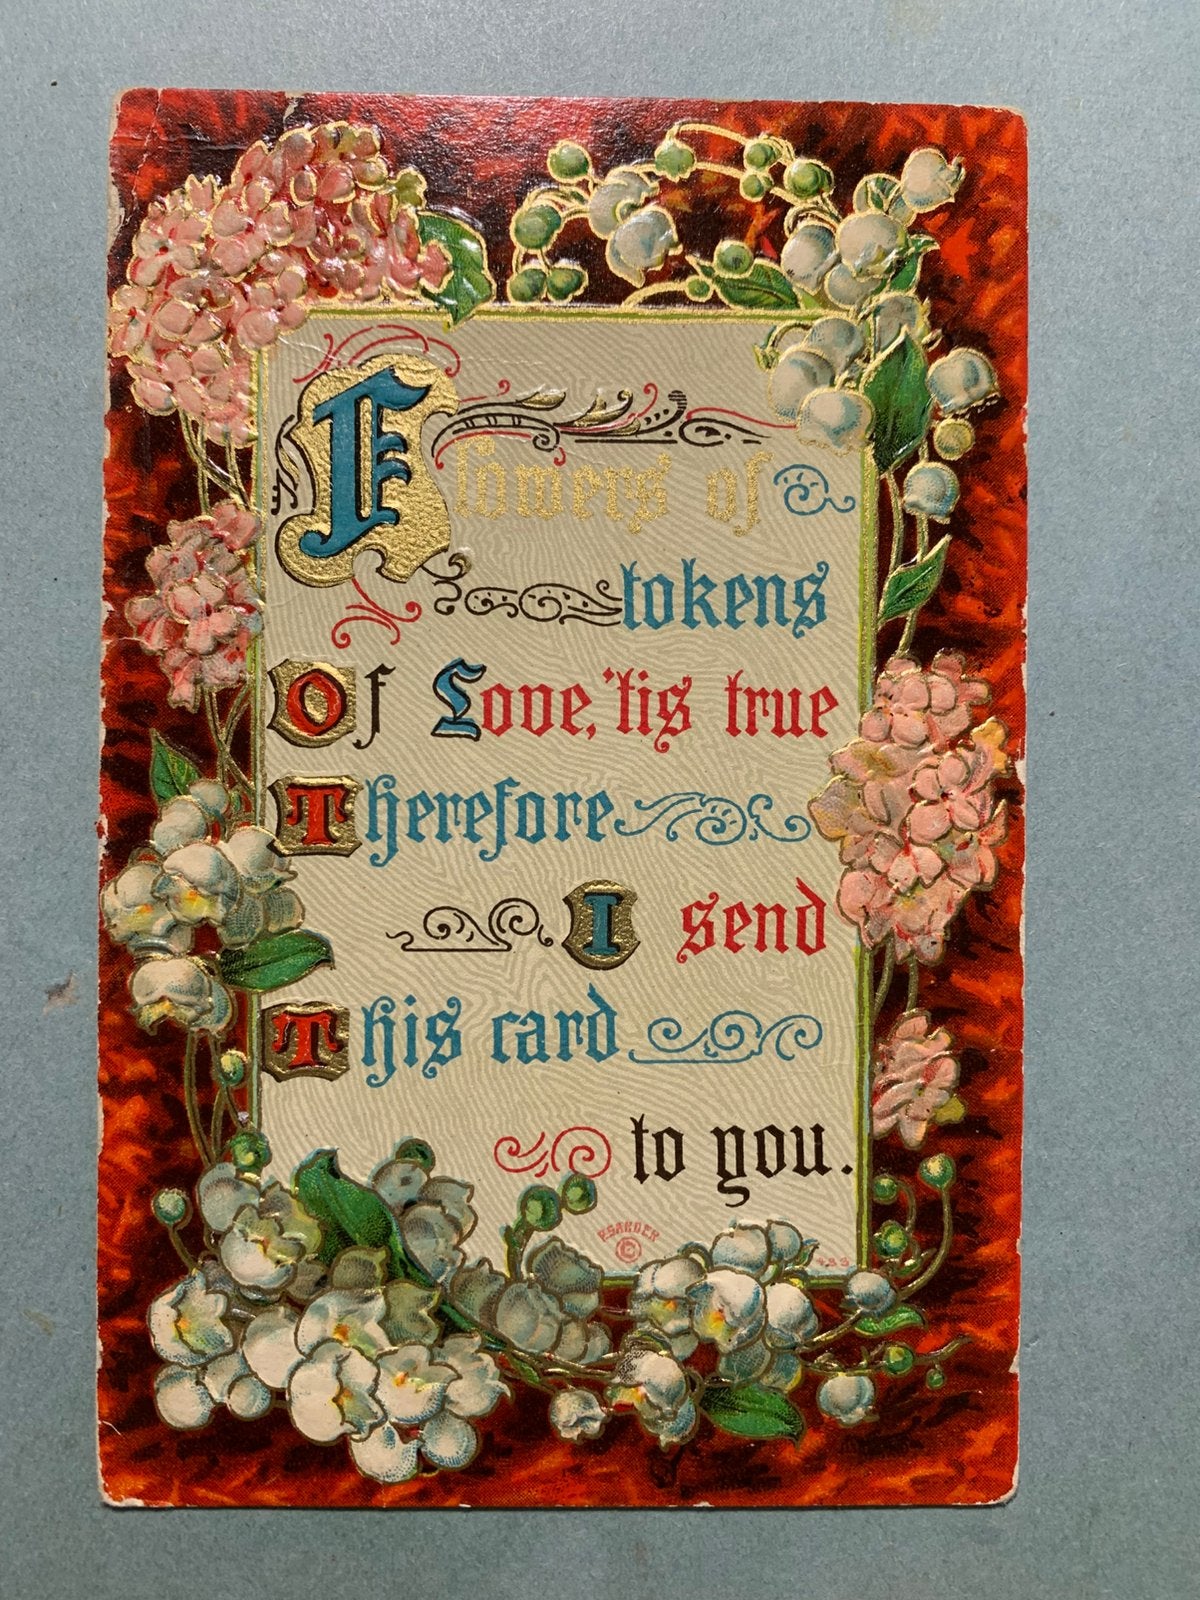 Flowers of
tokens
Of Love, 'tis true
Therefore
I send
This card
to you.
P. SANDER
©